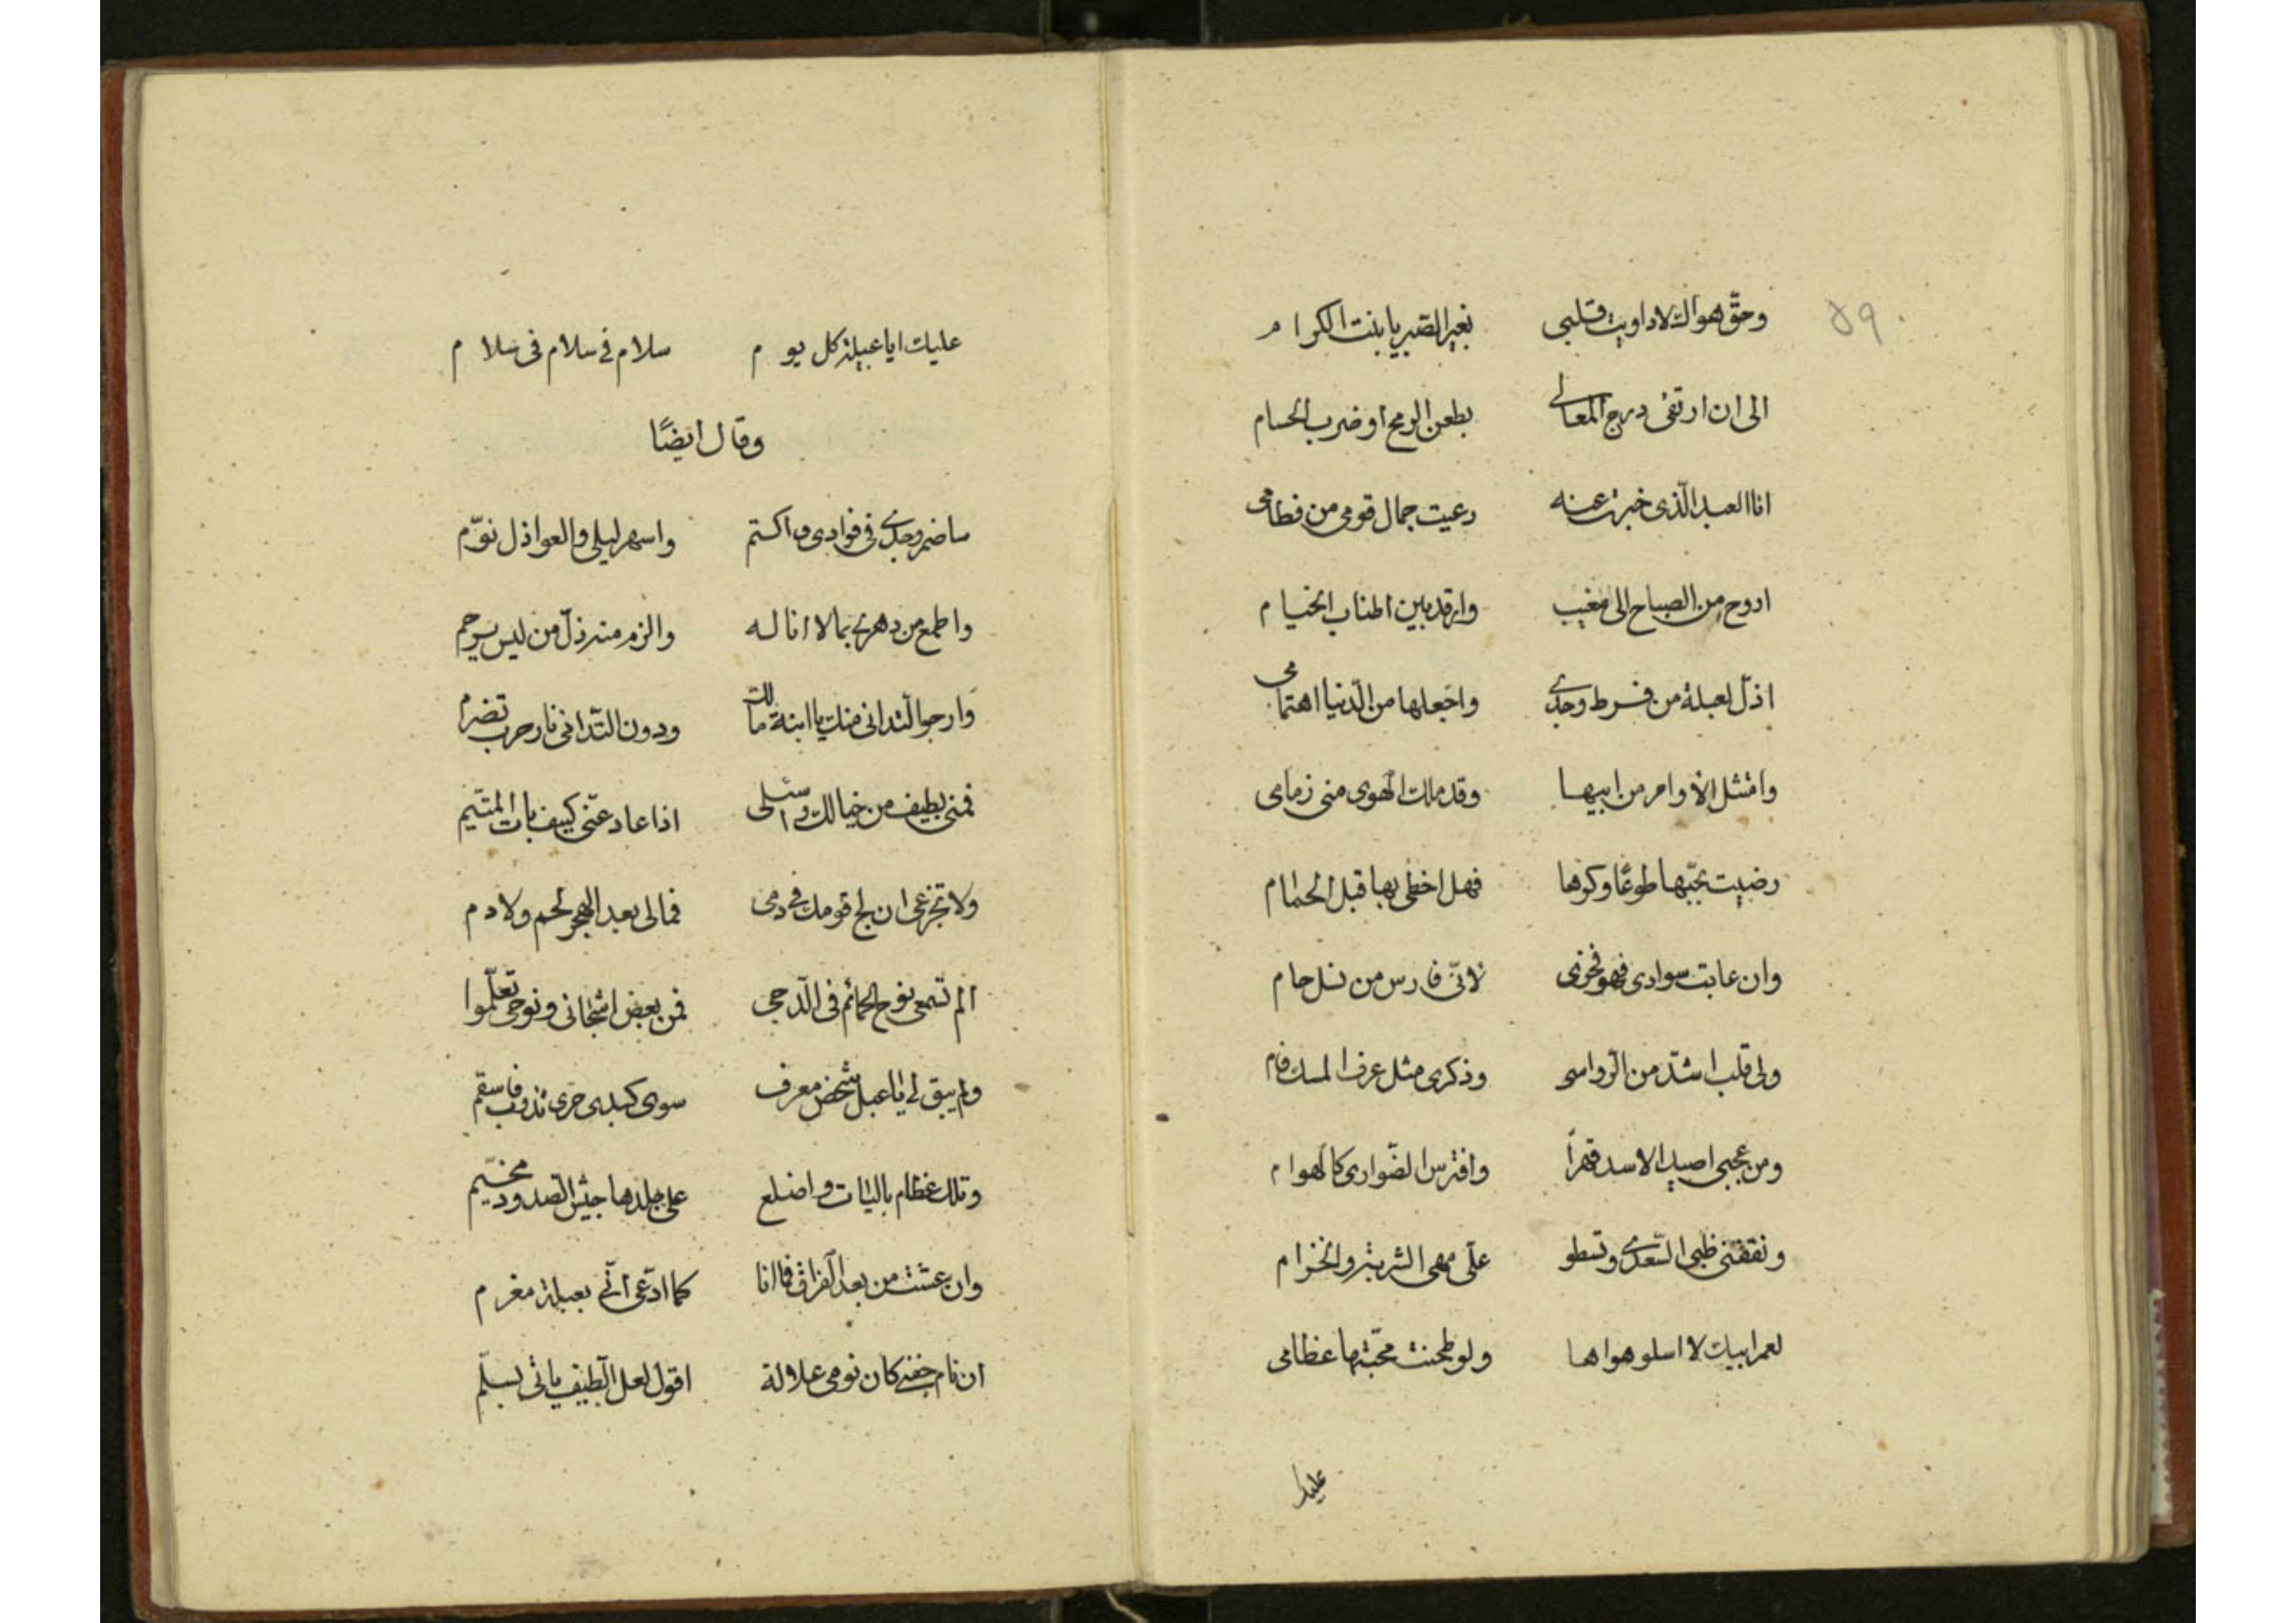 ٥٩
وحقّ هواك لا داويت قلبى بغير الصبر يا بنت الكرام
الى ان ارتقى درج المعالى بطعن الرمح او ضرب الحسام
انا العبد الّذى خبرت عنه رعيت جمال قومى من فطامى
اروح من الصباح الى مغيب وارقد بين اطناب الخيام
اذلّ لعبلة من فرط وجدى واجعلها من الدّنيا اهتمامى
وامتثل الاوامر من ابيها وقد ملك الهوى منى زمامى
رضيت بحبّها طوعًا وكرها فهل احظى بها قبل الحمام
وان عابت سوادى فهو فخرى لانّى فارس من نسل حام
ولى قلب اشدّ من الرّواسى وذكرى مثل عرف المسك فام
ومن عجبى اصيد الاسد قهراً وافترس الضّوارى كالهوام
وتقنصنى ظبى السّعدى وتسطو علّى مهى الشربة والخزام
لعمر ابيك لا اسلو هواها ولو طحنت محبّتها عظامى
عليك
عليك ايا عبيلة كل يوم سلام فى سلام فى سلام
وقال ايضًا
ساضمر وجدى فى فوادى واكتم واسهر ليلى والعواذل نوّم
واطمع من دهرى بما لا اناله والزم منه ذلّ من ليس يرحم
وارجو التدانى منك يا ابنة مالك ودون التّدانى نار حرب تضرم
فمنى بطيف من خيالك واسئلى اذا عاد عنّى كيف بات المتيّم
ولا تجزعى ان لج قومك فى دمى فمالى بعد الهجر لحم ولا دم
الم تسمعى نوح الحمائم فى الدّجى فمن بعض اشجانى ونوحى تعلّموا
ولم يبق لى يا عبل شخص معرف سوى كبدى حرى تذوب فاسقم
وتلك عظام باليات واضلع على جلدها جيش الصّدود مخيّم
وان عشت من بعد الفراق فما انا كما ادّعى انّى بعبلة مغرم
ان نام جفنى كان نومى علالة اقول لعل الطّيف ياتى يسلّم